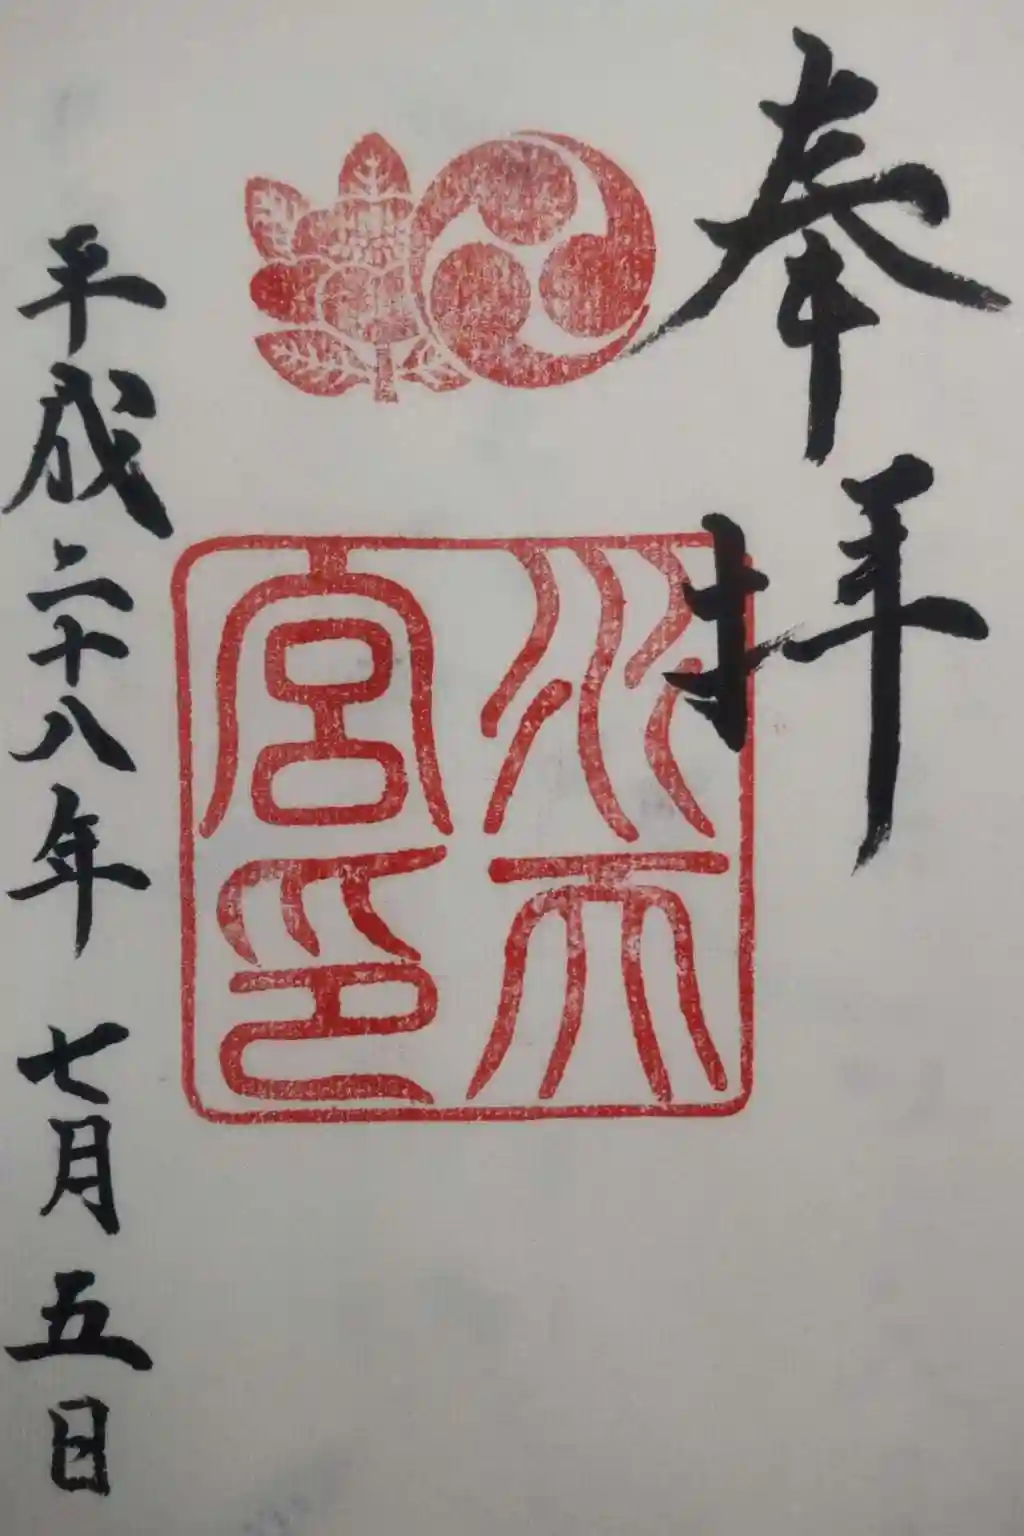 奉拝
水天
宮印
平成二十八年 七月五日